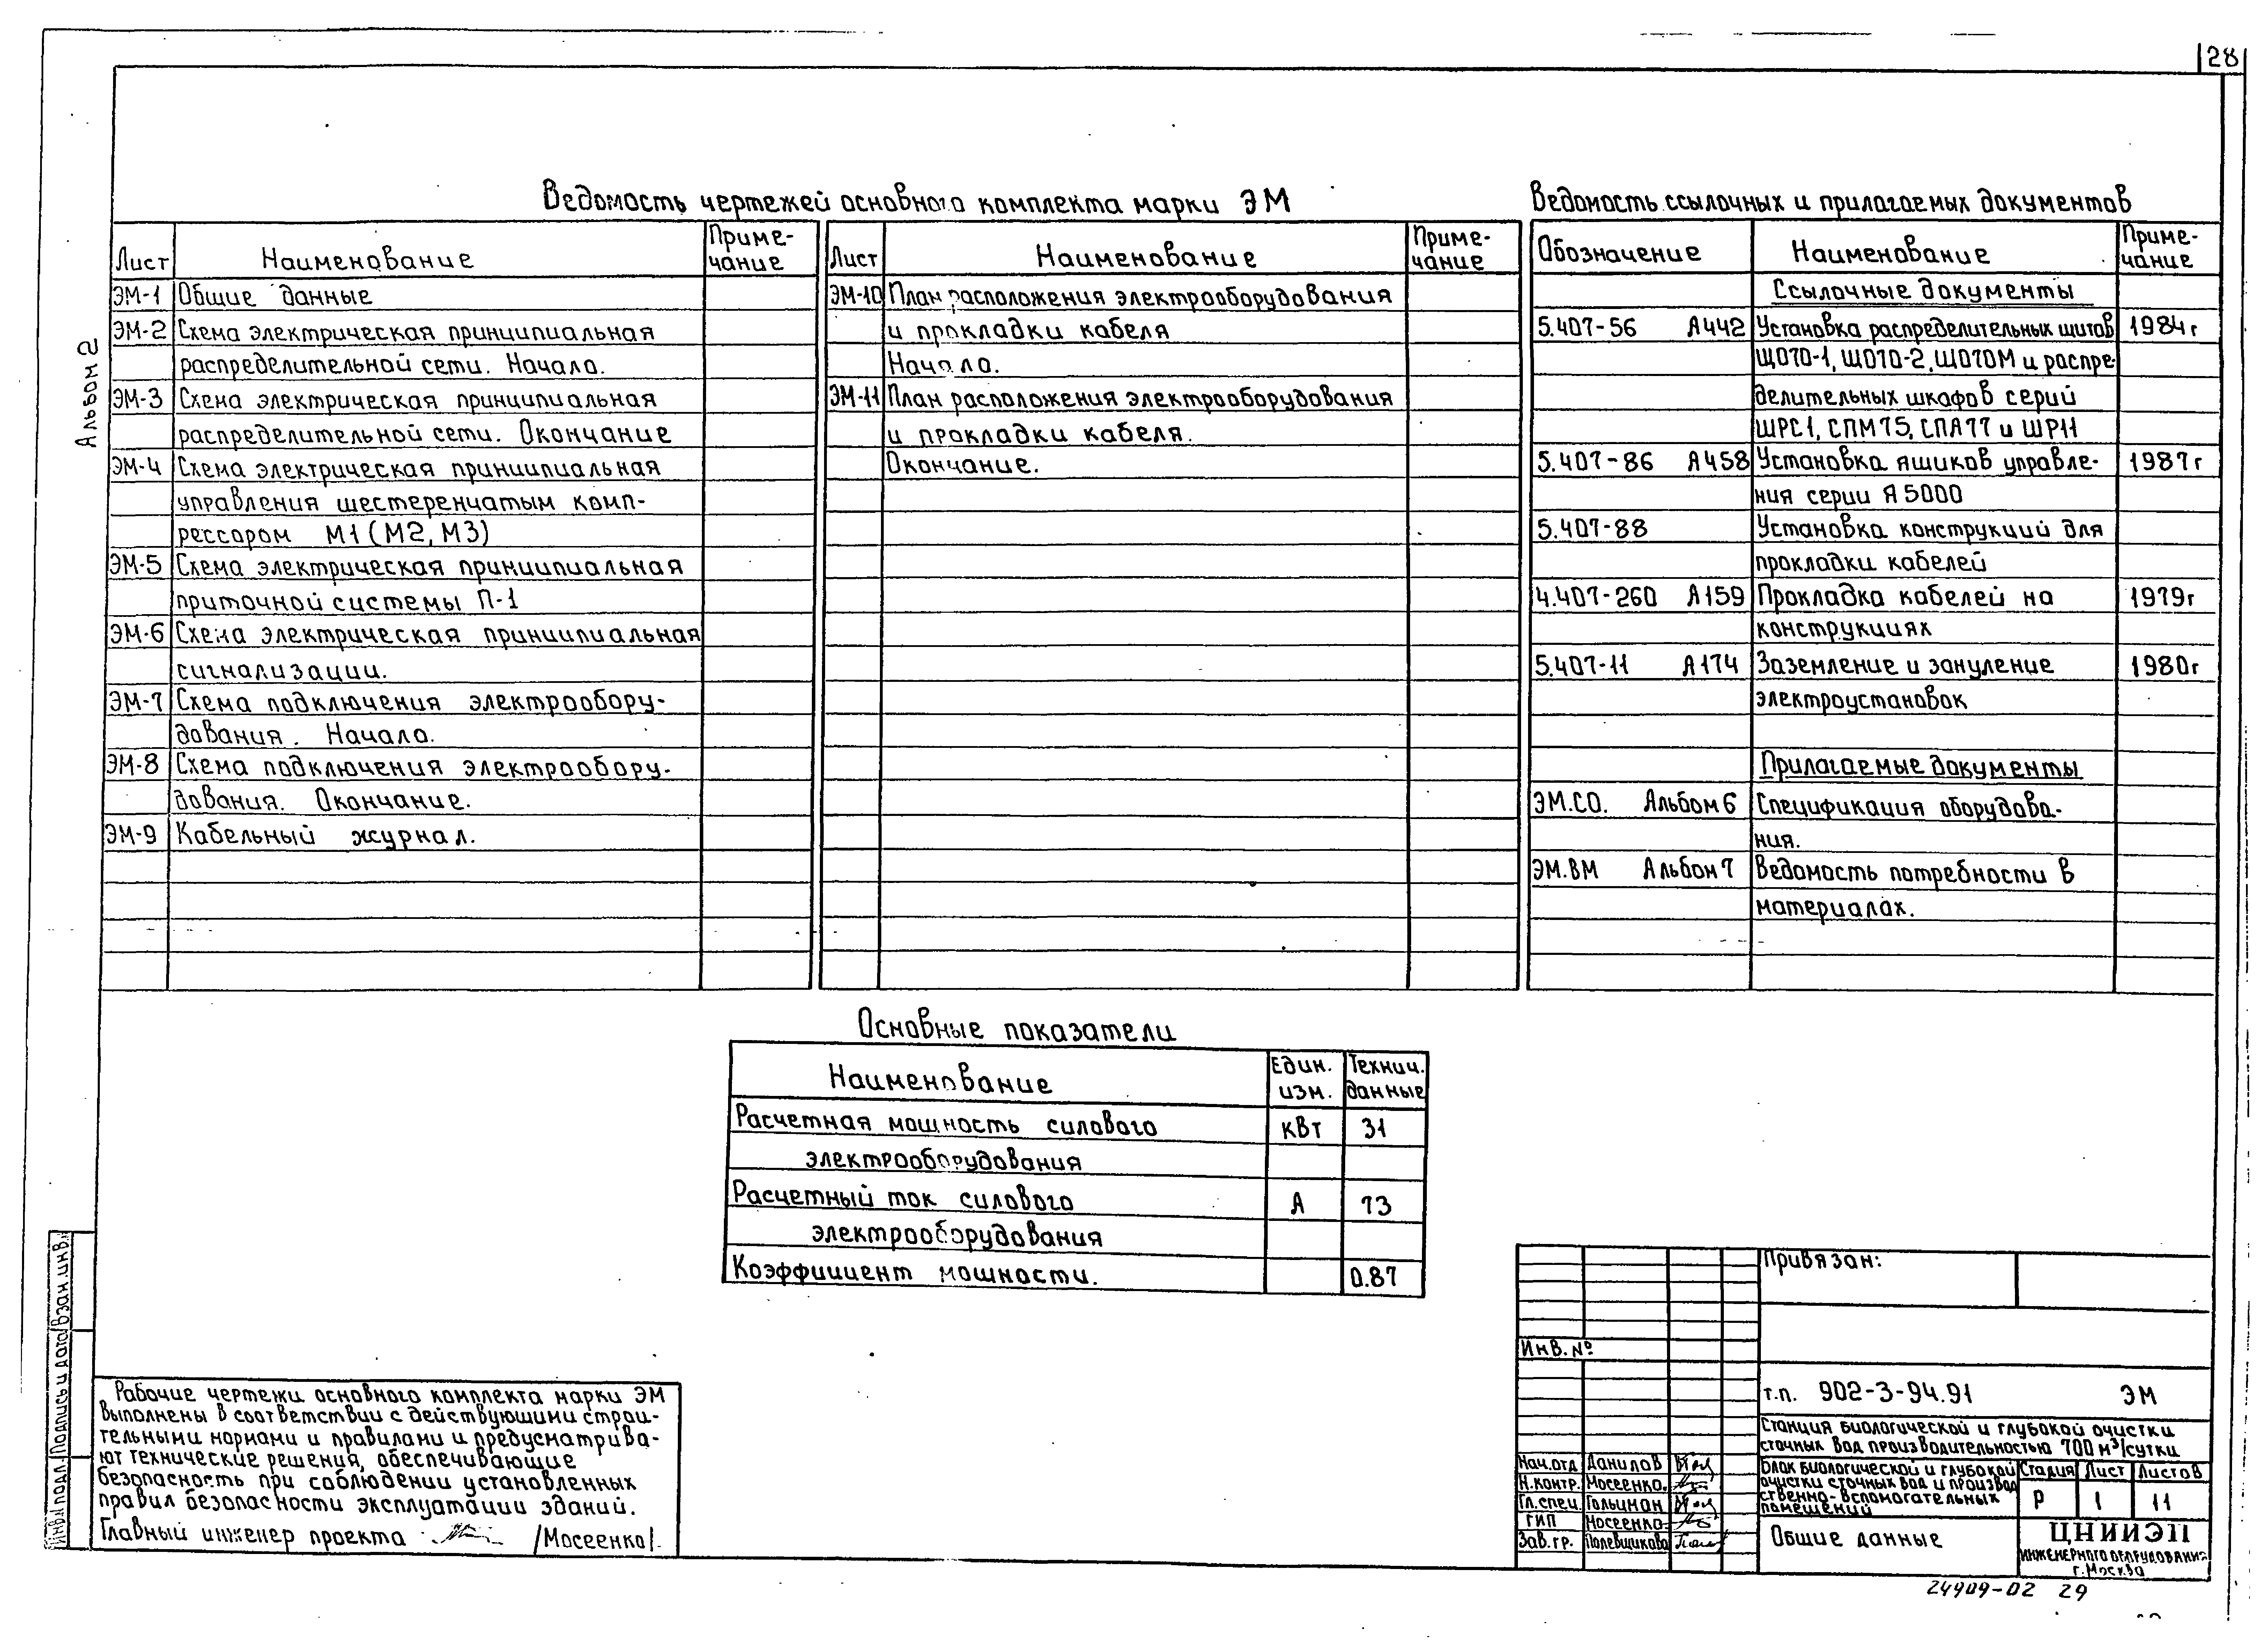 28
Альбом 2
Ведомость чертежей основного комплекта марки ЭМ
Лист Наименование Приме-
чание
ЭМ-1 Общие данные
ЭМ-2 Схема электрическая принципиальная
распределительной сети. Начало.
ЭМ-3 Схема электрическая принципиальная
распределительной сети. Окончание
ЭМ-4 Схема электрическая принципиальная
управления шестеренчатым комп-
рессором М1 (М2, М3)
ЭМ-5 Схема электрическая принципиальная
приточной системы П-1
ЭМ-6 Схема электрическая принципиальная
сигнализации.
ЭМ-7 Схема подключения электрообору-
дования. Начало.
ЭМ-8 Схема подключения электрообору-
дования. Окончание.
ЭМ-9 Кабельный журнал.
Лист Наименование Приме-
чание
ЭМ-10 План расположения электрооборудования
и прокладки кабеля
Начало.
ЭМ-11 План расположения электрооборудования
и прокладки кабеля.
Окончание.
Ведомость ссылочных и прилагаемых документов
Обозначение Наименование Приме-
чание
Ссылочные документы
5.407-56 А442 Установка распределительных щитов 1984г
ЩО70-1, ЩО70-2, ЩО70М и распре-
делительных шкафов серий
ШРС1, СПМ75, СПА77 и ШР11
5.407-86 А458 Установка ящиков управле- 1987г
ния серии Я5000
5.407-88 Установка конструкций для
прокладки кабелей
4.407-260 А159 Прокладка кабелей на 1979г
конструкциях
5.407-11 А174 Заземление и зануление 1980г
электроустановок
Прилагаемые документы
ЭМ.СО. Альбом 6 Спецификация оборудова-
ния.
ЭМ.ВМ Альбом 7 Ведомость потребности в
материалах.
Основные показатели
Наименование Един. изм. Технич. данные
Расчетная мощность силового кВт 31
электрооборудования
Расчетный ток силового А 73
электрооборудования
Коэффициент мощности. 0.87
Рабочие чертежи основного комплекта марки ЭМ
выполнены в соответствии с действующими строи-
тельными нормами и правилами и предусматрива-
ют технические решения, обеспечивающие
безопасность при соблюдении установленных
правил безопасности эксплуатации зданий.
Главный инженер проекта /Мосеенко/.
Инв.№ подл. Подпись и дата Взан.инв.№
Привязан:
Инв. №
т.п. 902-3-94.91 ЭМ
Станция биологической и глубокой очистки
сточных вод производительностью 700 м³/сутки
Нач.отд Данилов
Н.контр. Мосеенко.
Гл.спец. Гольцман
ГИП Мосеенко
Зав.гр. Полевщикова
Блок биологической и глубокой
очистки сточных вод и производ
ственно-вспомогательных
помещений
Стадия Лист Листов
Р 1 11
Общие данные
ЦНИИЭП
инженерного оборудования
г. Москва
24909-02 29